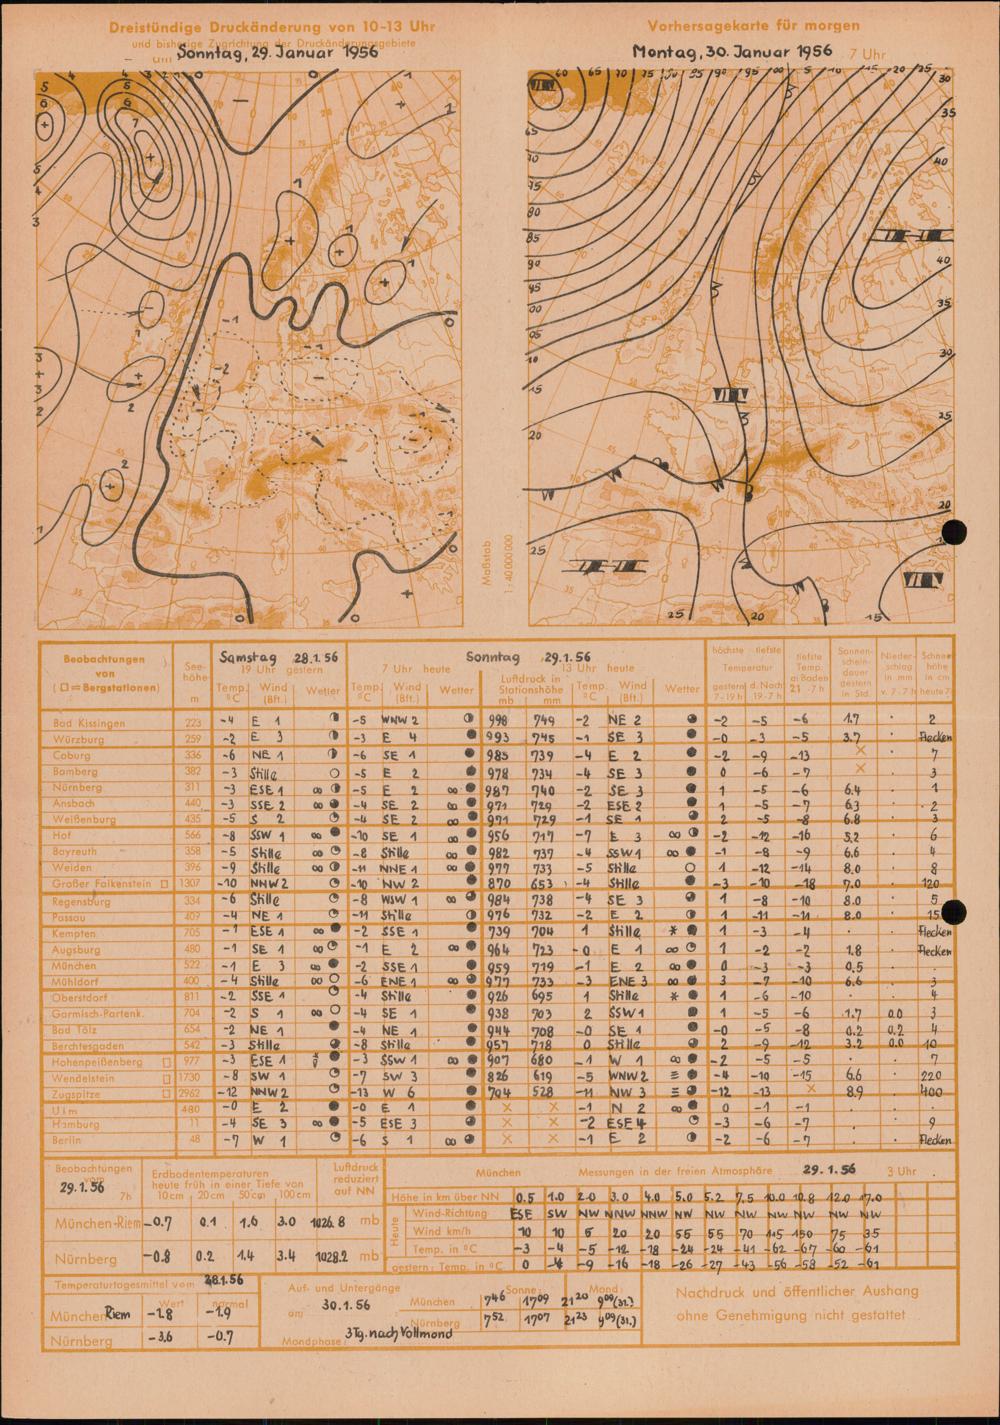 Dreistündige Druckänderung von 10-13 Uhr
und bisherige Zugrichtung der Druckänderungsgebiete
Sonntag, 29. Januar 1956
Vorhersagekarte für morgen
Montag, 30. Januar 1956 7 Uhr
Maßstab 1:40 000 000
Beobachtungen von (□=Bergstationen)
Seehöhe m
Samstag 28.1.56
19 Uhr gestern
Sonntag 29.1.56
7 Uhr heute 13 Uhr heute
Temp. °C Wind (Bft.) Wetter
Temp. °C Wind (Bft.) Wetter
Luftdruck in Stationshöhe mb mm
Temp. °C Wind (Bft.) Wetter
höchste tiefste Temperatur
gestern 7-19h d. Nacht 19-7h
tiefste Temp. am Boden 21-7h
Sonnenscheindauer gestern in Std.
Niederschlag in mm v. 7-7h
Schneehöhe in cm heute 7h
Bad Kissingen 223 -4 E 1 -5 WNW 2 998 749 -2 NE 2 -2 -5 -6 1.7 . 2
Würzburg 259 -2 E 3 -3 E 4 993 745 -1 SE 3 -0 -3 -5 3.7 . Flecken
Coburg 336 -6 NE 1 -6 SE 1 985 739 -4 E 2 -2 -9 -13 × . 7
Bamberg 382 -3 Stille -5 E 2 978 734 -4 SE 3 0 -6 -7 × . 3
Nürnberg 311 -3 ESE 1 ∞ -5 E 2 ∞ 987 740 -2 SE 3 1 -5 -6 6.4 . 1
Ansbach 440 -3 SSE 2 ∞ -4 SE 2 ∞ 971 729 -2 ESE 2 1 -5 -7 6.3 . 2
Weißenburg 435 -5 S 2 -4 SE 2 ∞ 971 729 -1 SE 1 2 -5 -8 6.8 . 3
Hof 566 -8 SSW 1 ∞ -10 SE 1 956 717 -7 E 3 ∞ -2 -12 -16 5.2 . 6
Bayreuth 358 -5 Stille ∞ -8 Stille ∞ 982 737 -4 SSW 1 ∞ -1 -8 -9 6.6 . 4
Weiden 396 -9 Stille ∞ -11 NNE 1 ∞ 977 733 -5 Stille 1 -12 -14 8.0 . 8
Großer Falkenstein □ 1307 -10 NNW 2 -10 NW 2 870 653 -4 Stille -3 -10 -18 7.0 . 120
Regensburg 334 -6 Stille -8 WSW 1 984 738 -4 SE 3 1 -8 -10 8.0 . 5
Passau 409 -4 NE 1 -11 Stille 976 732 -2 E 2 1 -11 -11 8.0 . 15
Kempten 705 -1 ESE 1 ∞ -2 SSE 1 739 704 1 Stille * 1 -3 -4 . Flecken
Augsburg 480 -1 SE 1 ∞ -1 E 2 ∞ 964 723 -0 E 1 ∞ 1 -2 -2 1.8 . Flecken
München 522 -1 E 3 ∞ -2 SSE 1 959 719 -1 E 2 ∞ 0 -3 -3 0.5 .
Mühldorf 400 -4 Stille ∞ -6 ENE 1 ∞ 977 733 -3 ENE 3 ∞ 3 -7 -10 6.6 . 3
Oberstdorf 811 -2 SSE 1 -4 Stille 926 695 1 Stille * 1 -6 -10 . 4
Garmisch-Partenk. 704 -2 S 1 ∞ -4 SE 1 938 703 2 SSW 1 1 -5 -6 1.7 0.0 3
Bad Tölz 654 -2 NE 1 -4 NE 1 944 708 -0 SE 1 -0 -5 -8 0.2 0.2 4
Berchtesgaden 542 -3 Stille -8 Stille 957 718 0 Stille 2 -9 -12 3.2 0.0 10
Hohenpeißenberg □ 977 -3 ESE 1 -3 SSW 1 ∞ 907 680 -1 W 1 ∞ -2 -5 -5 . 7
Wendelstein □ 1730 -8 SW 1 -7 SW 3 826 619 -5 WNW 2 ≡ -4 -10 -15 6.6 220
Zugspitze □ 2962 -12 NNW 2 -13 W 6 704 528 -11 NW 3 ≡ -12 -13 × 8.9 400
Ulm 480 -0 E 2 -0 E 1 × × -1 N 2 ∞ 0 -1 -1 .
Hamburg 11 -4 SE 3 ∞ -5 ESE 3 × × -2 ESE 4 -3 -6 -7 . 9
Berlin 48 -7 W 1 -6 S 1 ∞ × × -1 E 2 -2 -6 -7 Flecken
Beobachtungen vom 29.1.56 7h
Erdbodentemperaturen heute früh in einer Tiefe von
10cm 20cm 50cm 100cm
Luftdruck reduziert auf NN
München-Riem -0.7 0.1 1.6 3.0 1026.8 mb
Nürnberg -0.8 0.2 1.4 3.4 1028.2 mb
München Messungen in der freien Atmosphäre 29.1.56 3 Uhr
Heute
Höhe in km über NN 0.5 1.0 2.0 3.0 4.0 5.0 5.2 7.5 10.0 10.8 12.0 17.0
Wind-Richtung ESE SW NW NNW NNW NW NW NW NW NW NW NW
Wind km/h 10 10 5 20 20 55 55 70 115 150 75 35
Temp. in °C -3 -4 -5 -12 -18 -24 -24 -41 -62 -67 -60 -61
gestern: Temp. in °C 0 -4 -9 -16 -18 -26 -27 -43 -56 -58 -52 -61
Temperaturtagesmittel vom 28.1.56
Wert normal
München Riem -1.8 -1.9
Nürnberg -3.6 -0.7
Auf- und Untergänge am 30.1.56
Sonne: Mond:
München 7 46 17 09 21 20 9 09 (31.)
Nürnberg 7 52 17 07 21 23 9 09 (31.)
Mondphase: 3 Tg. nach Vollmond
Nachdruck und öffentlicher Aushang
ohne Genehmigung nicht gestattet